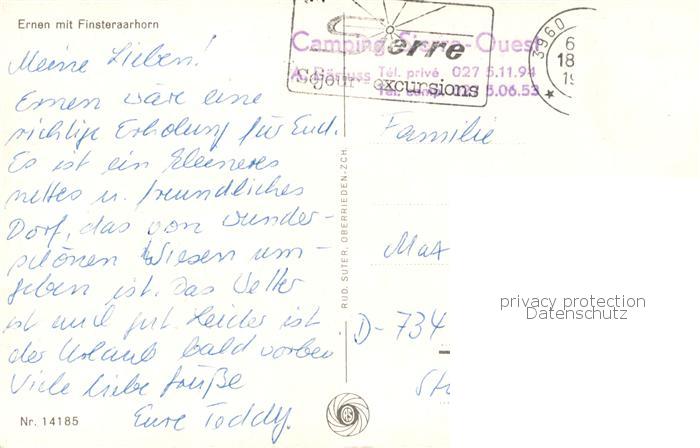 Ernen mit Finsteraarhorn
Meine Lieben!
Ernen wäre eine
richtige Erholung für Euch.
Es ist ein kleineres
nettes u. freundliches
Dorf, das von wunder-
schönen Wiesen um-
geben ist. Das Wetter
ist gut. Leider ist
der Urlaub bald vorbei
Viele liebe Grüße
Eure Toddy.
Nr. 14185
RUD. SUTER, OBERRIEDEN-ZCH.
Sierre
Séjour - excursions
Camping Sierre-Ouest
Tél. privé 027 5.11.94
Tél. camp. 5.06.53
3960
6
18
19
Familie
Max
D-734
privacy protection
Datenschutz